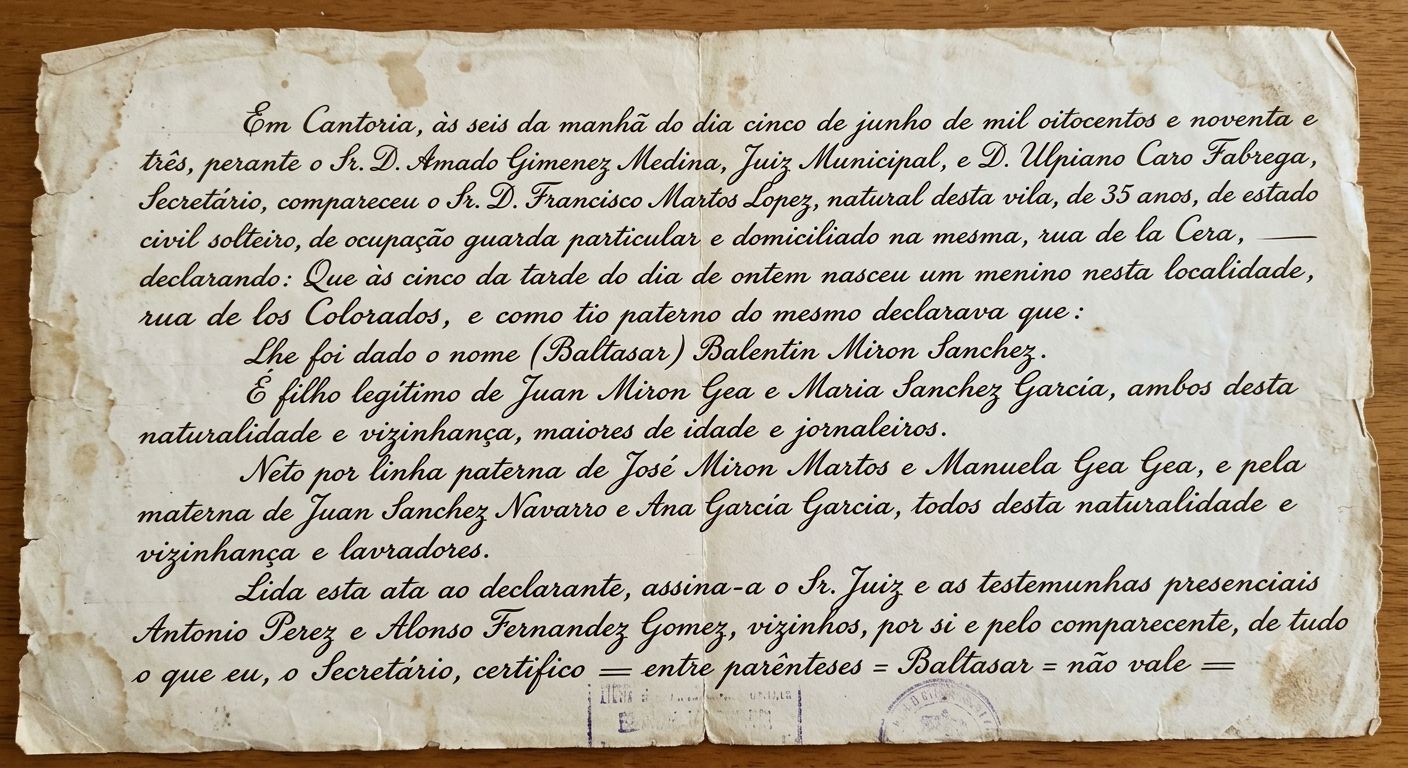 Em Cantoria, às seis da manhã do dia cinco de junho de mil oitocentos e noventa e
três, perante o Sr. D. Amado Gimenez Medina, Juiz Municipal, e D. Ulpiano Caro Fabrega,
Secretário, compareceu o Sr. D. Francisco Martos Lopez, natural desta vila, de 35 anos, de estado
civil solteiro, de ocupação guarda particular e domiciliado na mesma, rua de la Cera, —
declarando: Que às cinco da tarde do dia de ontem nasceu um menino nesta localidade,
rua de los Colorados, e como tio paterno do mesmo declarava que:
Lhe foi dado o nome (Baltasar) Balentin Miron Sanchez.
É filho legítimo de Juan Miron Gea e Maria Sanchez García, ambos desta
naturalidade e vizinhança, maiores de idade e jornaleiros.
Neto por linha paterna de José Miron Martos e Manuela Gea Gea, e pela
materna de Juan Sanchez Navarro e Ana García Garcia, todos desta naturalidade e
vizinhança e lavradores.
Lida esta ata ao declarante, assina-a o Sr. Juiz e as testemunhas presenciais
Antonio Perez e Alonso Fernandez Gomez, vizinhos, por si e pelo comparecente, de tudo
o que eu, o Secretário, certifico = entre parênteses = Baltasar = não vale =